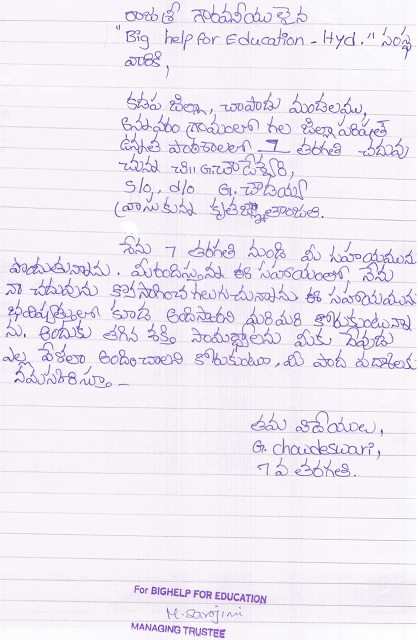 రాజశ్రీ గౌరవనీయులైన
"Big help for Education - Hyd." సంస్థ
వారికి,
కడప జిల్లా, చాపాడు మండలము,
గ్రామంలో గల జిల్లా పరిషత్
ఉన్నత పాఠశాలలో 7 తరగతి చదువు
చున్న చి|| G. చౌడేశ్వరి,
S/o, d/o G. చౌడయ్య
వ్రాసుకున్న కృతజ్ఞతాంజలి.
నేను 7 తరగతి నుండి మీ సహాయమును
పొందుతున్నాను. మీరందిస్తున్న ఈ సహాయంతో నేను
నా చదువును కొనసాగించగలుగుచున్నాను ఈ సహాయమును
భవిష్యత్తులో కూడా అందిస్తారని మరీమరీ కోరుకుంటున్నా
ను. అందుకు తగిన శక్తి సామర్థ్యాలను మీకు దేవుడు
ఎల్ల వేళలా అందించాలని కోరుకుంటూ, మీ పాద
తమ విధేయులు,
G. chowdeswari,
7 వ తరగతి.
For BIGHELP FOR EDUCATION
M. Sarojini
MANAGING TRUSTEE